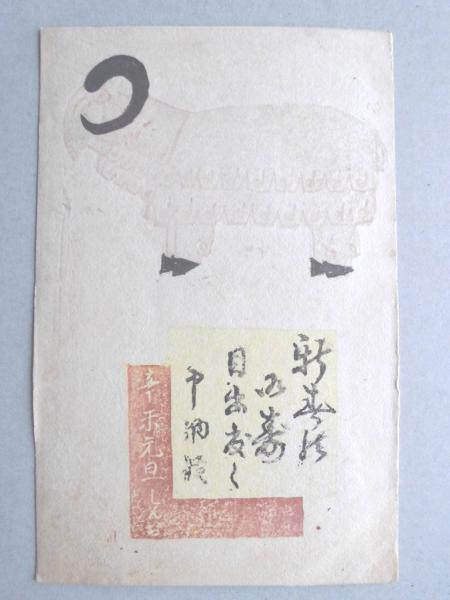 新春の
御壽
目出度く
申納候
辛未元旦